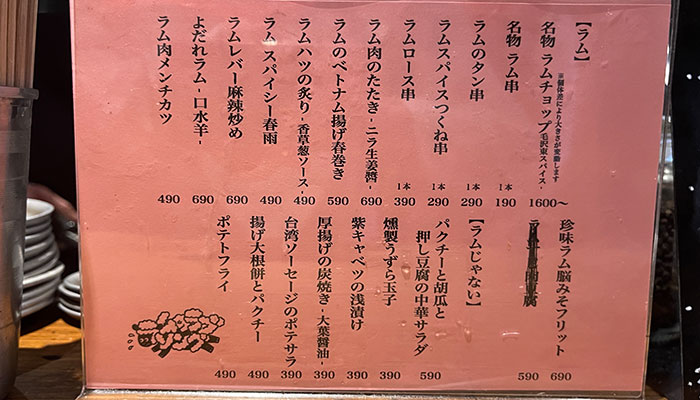 【ラム】
名物 ラムチョップ -毛沢東スパイス- 1600〜
※個体差により大きさが変動します
名物 ラム串 1本 190
ラムのタン串 1本 290
ラムスパイスつくね串 1本 290
ラムロース串 1本 390
ラム肉のたたき - ニラ生姜醬 - 690
ラムのベトナム揚げ春巻き 590
ラムハツの炙り - 香草葱ソース - 490
ラム スパイシー春雨 490
ラムレバー麻辣炒め 690
よだれラム - 口水羊 - 690
ラム肉メンチカツ 490
珍味ラム脳みそフリット 690
590
【ラムじゃない】
パクチーと胡瓜と
押し豆腐の中華サラダ 590
燻製うずら玉子 390
紫キャベツの浅漬け 390
厚揚げの炭焼き - 大葉醤油 - 390
台湾ソーセージのポテサラ 390
揚げ大根餅とパクチー 490
ポテトフライ 490